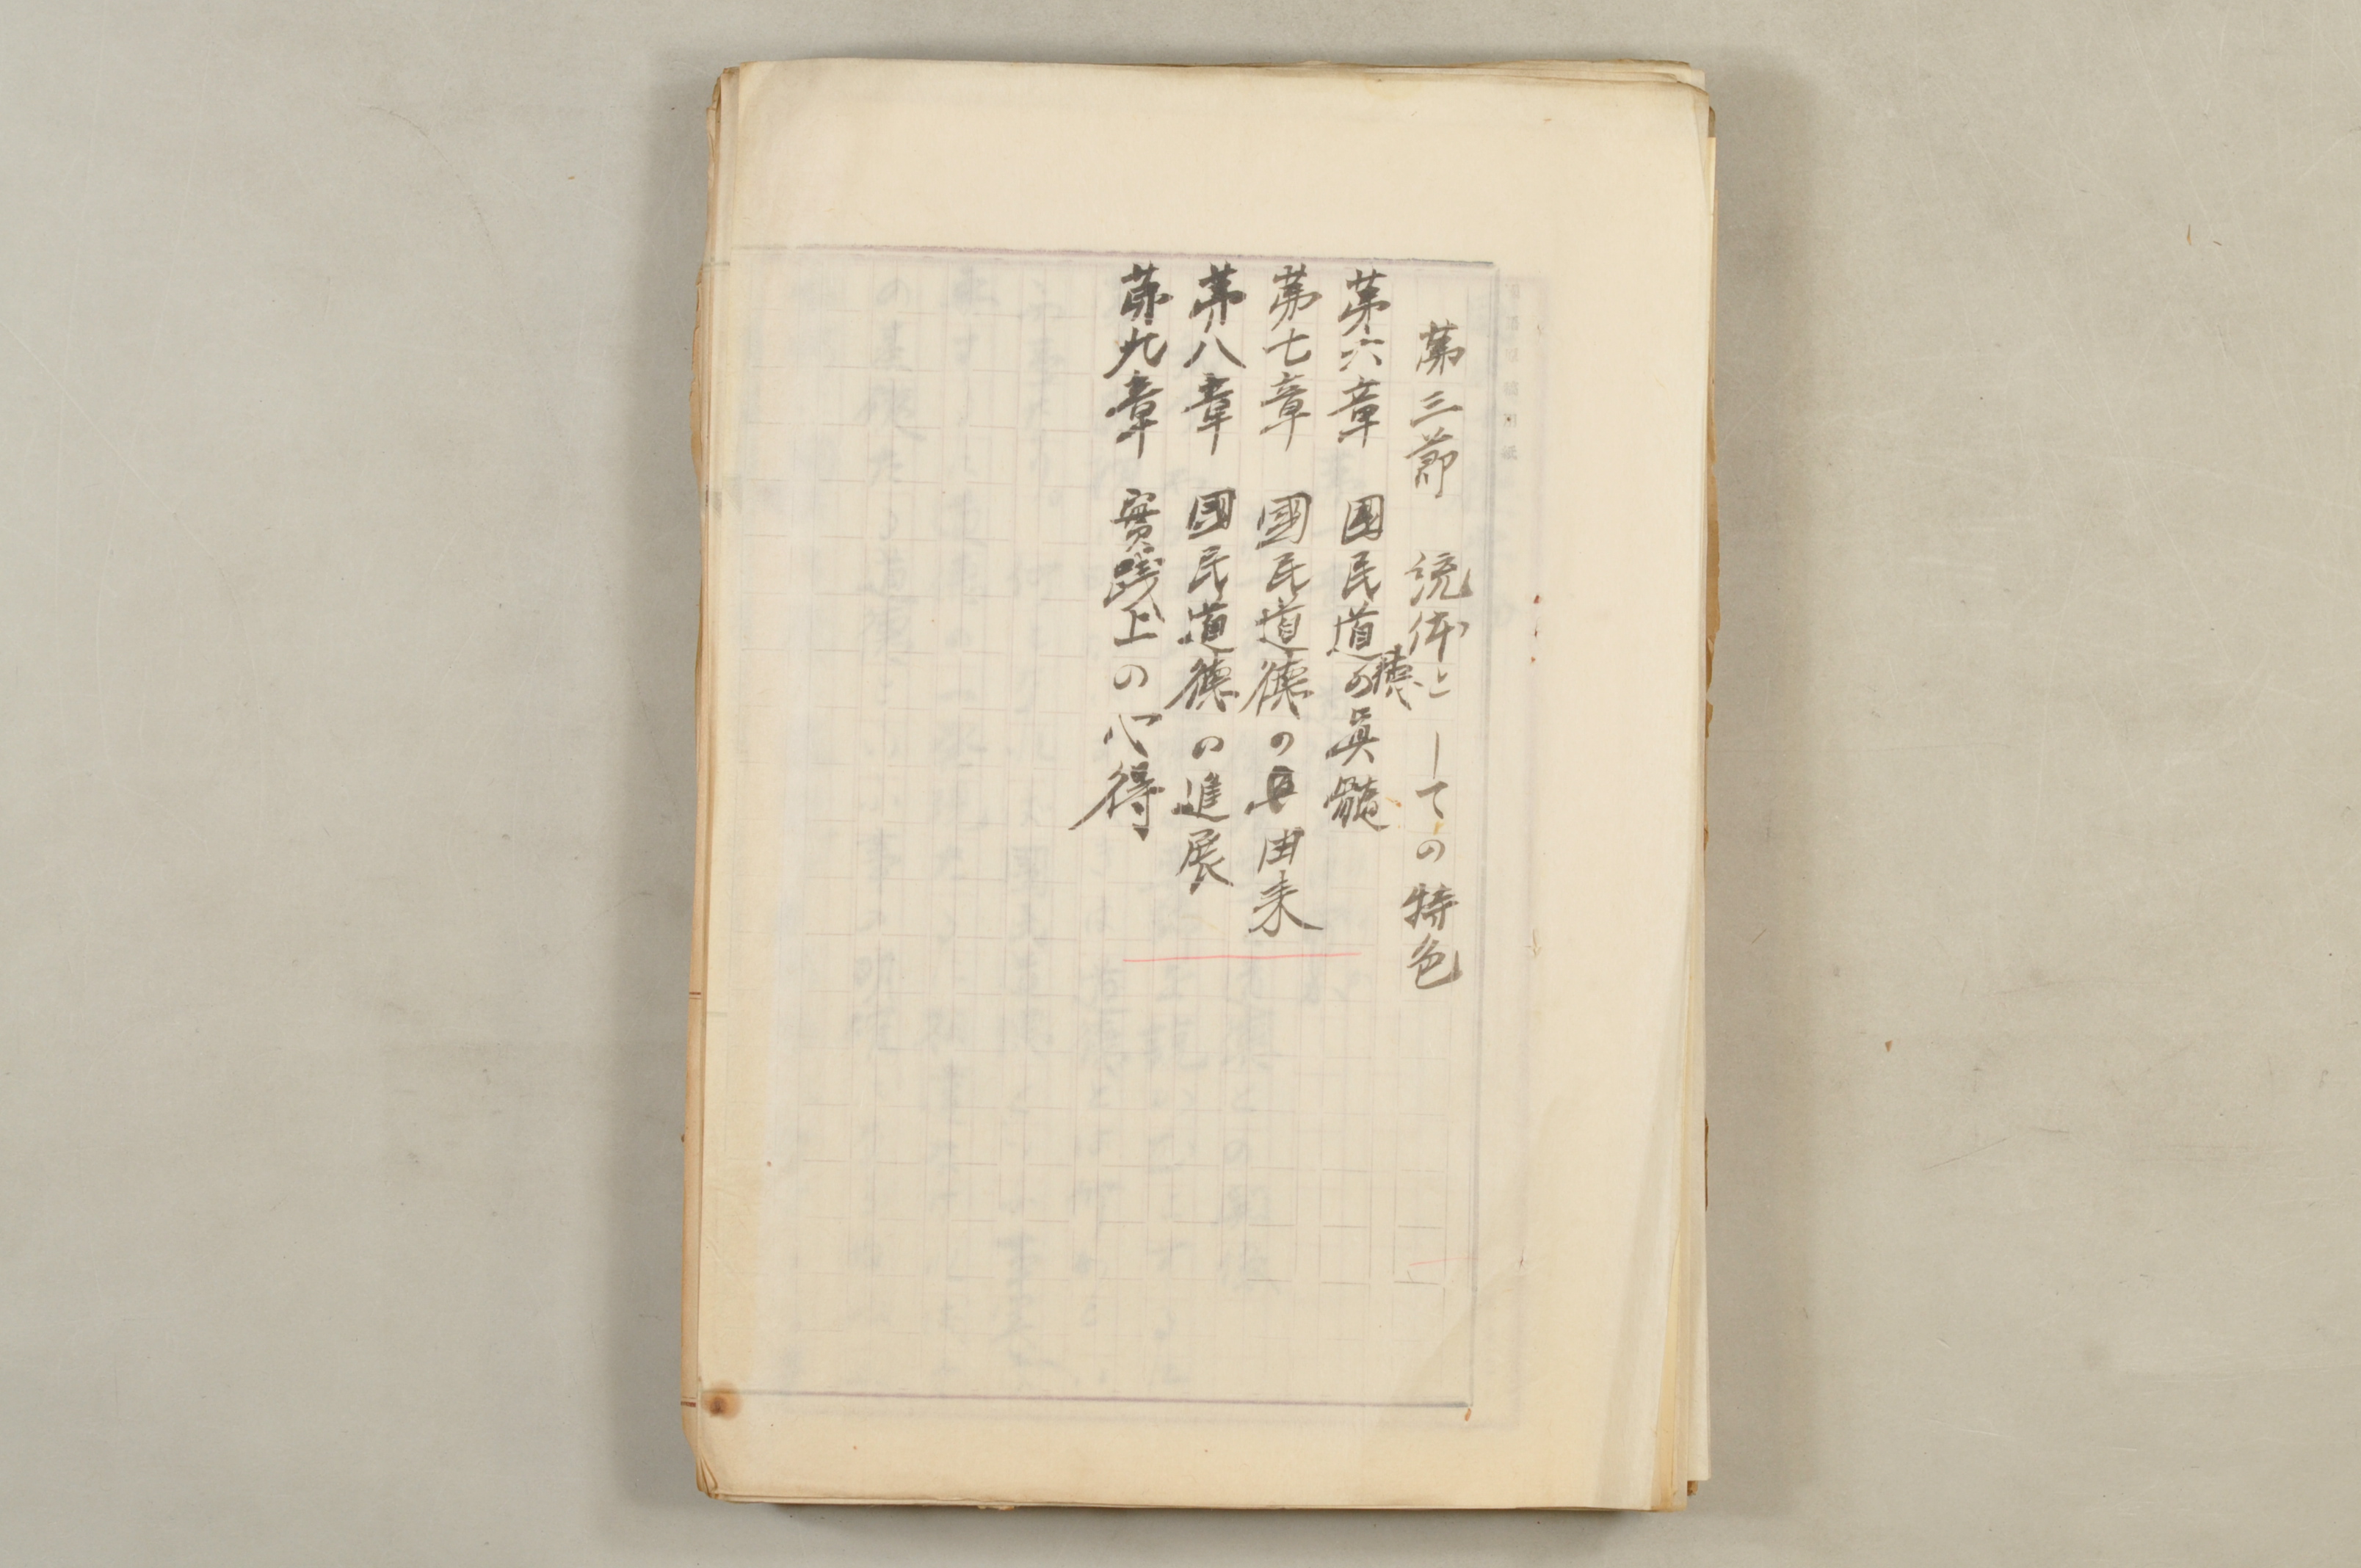 第三節　統体としての特色
第六章　國民道德の眞髓
第七章　國民道德の由来
第八章　國民道德の進展
第九章　實践上の心得